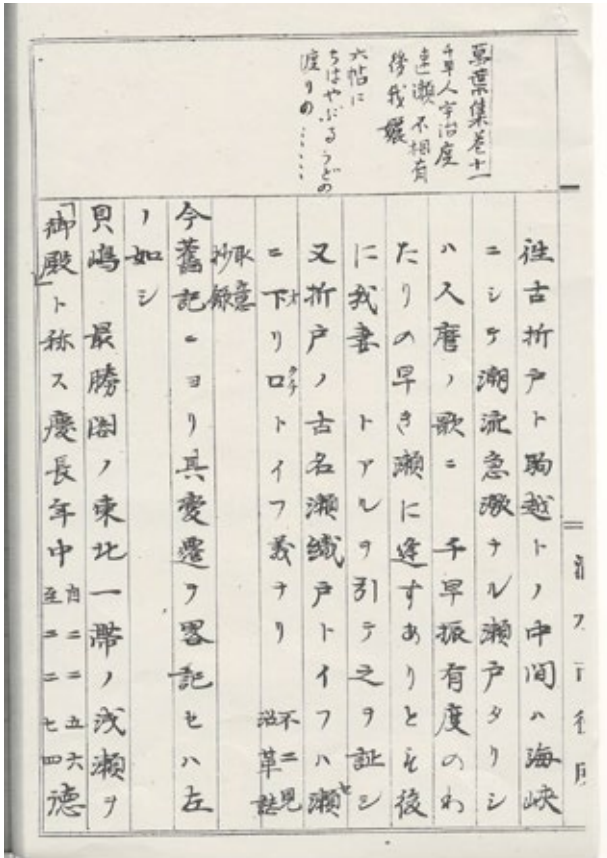 萬葉集巻十一
千早人宇治度
速瀬不相有
後我孋
六帖に
ちはやぶるうどの
渡りの……
往古折戸ト駒越トノ中間ハ海峡
ニシテ潮流急激ナル瀬戸タリシ
ハ人麿ノ歌ニ 千早振有度のわ
たりの早き瀬に逢すありとも後
に我妻 トアルヲ引テ之ヲ証シ
又折戸ノ古名瀬織戸トイフハ瀬セ
ニ下オリ口クチトイフ義ナリ 不二見沿革誌
取意抄録
今舊記ニヨリ其変遷ヲ畧記セハ左
ノ如シ
貝嶋 最勝閣ノ東北一帯ノ浅瀬ヲ
「御殿」ト称ス慶長年中自二二五六至二二七四徳